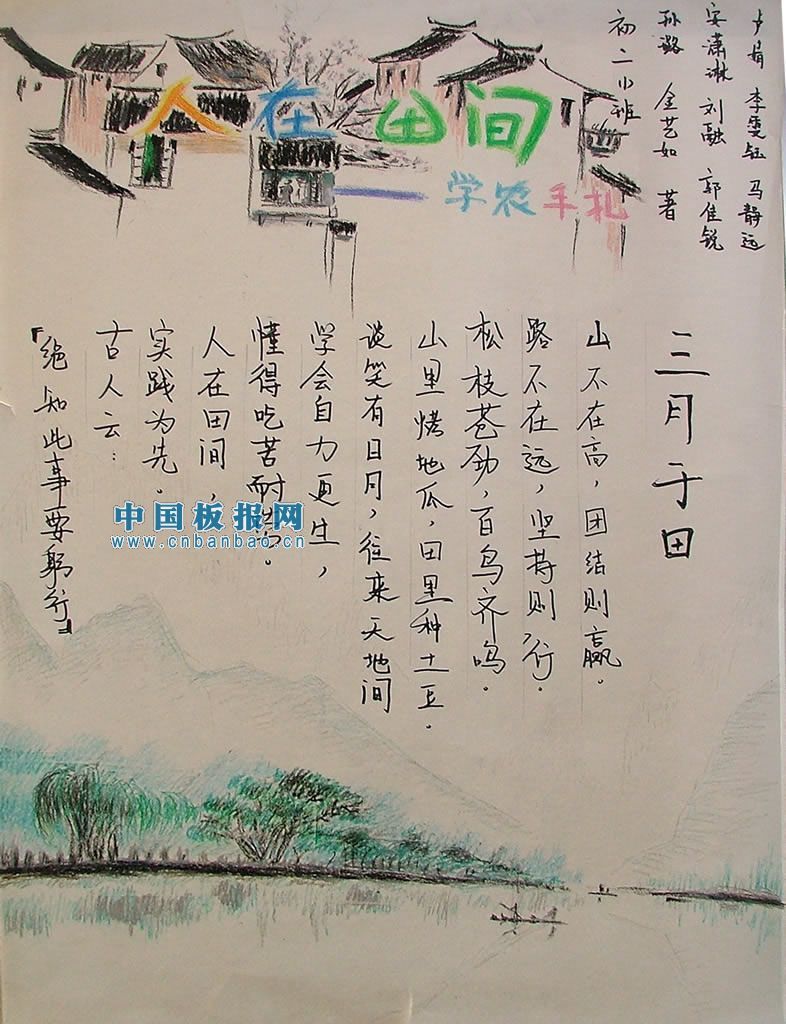 人在田间
——学农手札
卢娟 李雯钰 马静远
安潇琳 刘融 郭佳锐
孙璐 金艺如 著
初二小班
三月于田
山不在高，团结则赢。
路不在远，坚持则行。
松枝苍劲，百鸟齐鸣。
山里烤地瓜，田里种土豆。
谈笑有日月，往来天地间
学会自力更生，
懂得吃苦耐劳。
人在田间，
实践为先。
古人云：
『绝知此事要躬行』
中国板报网
www.cnbanbao.cn